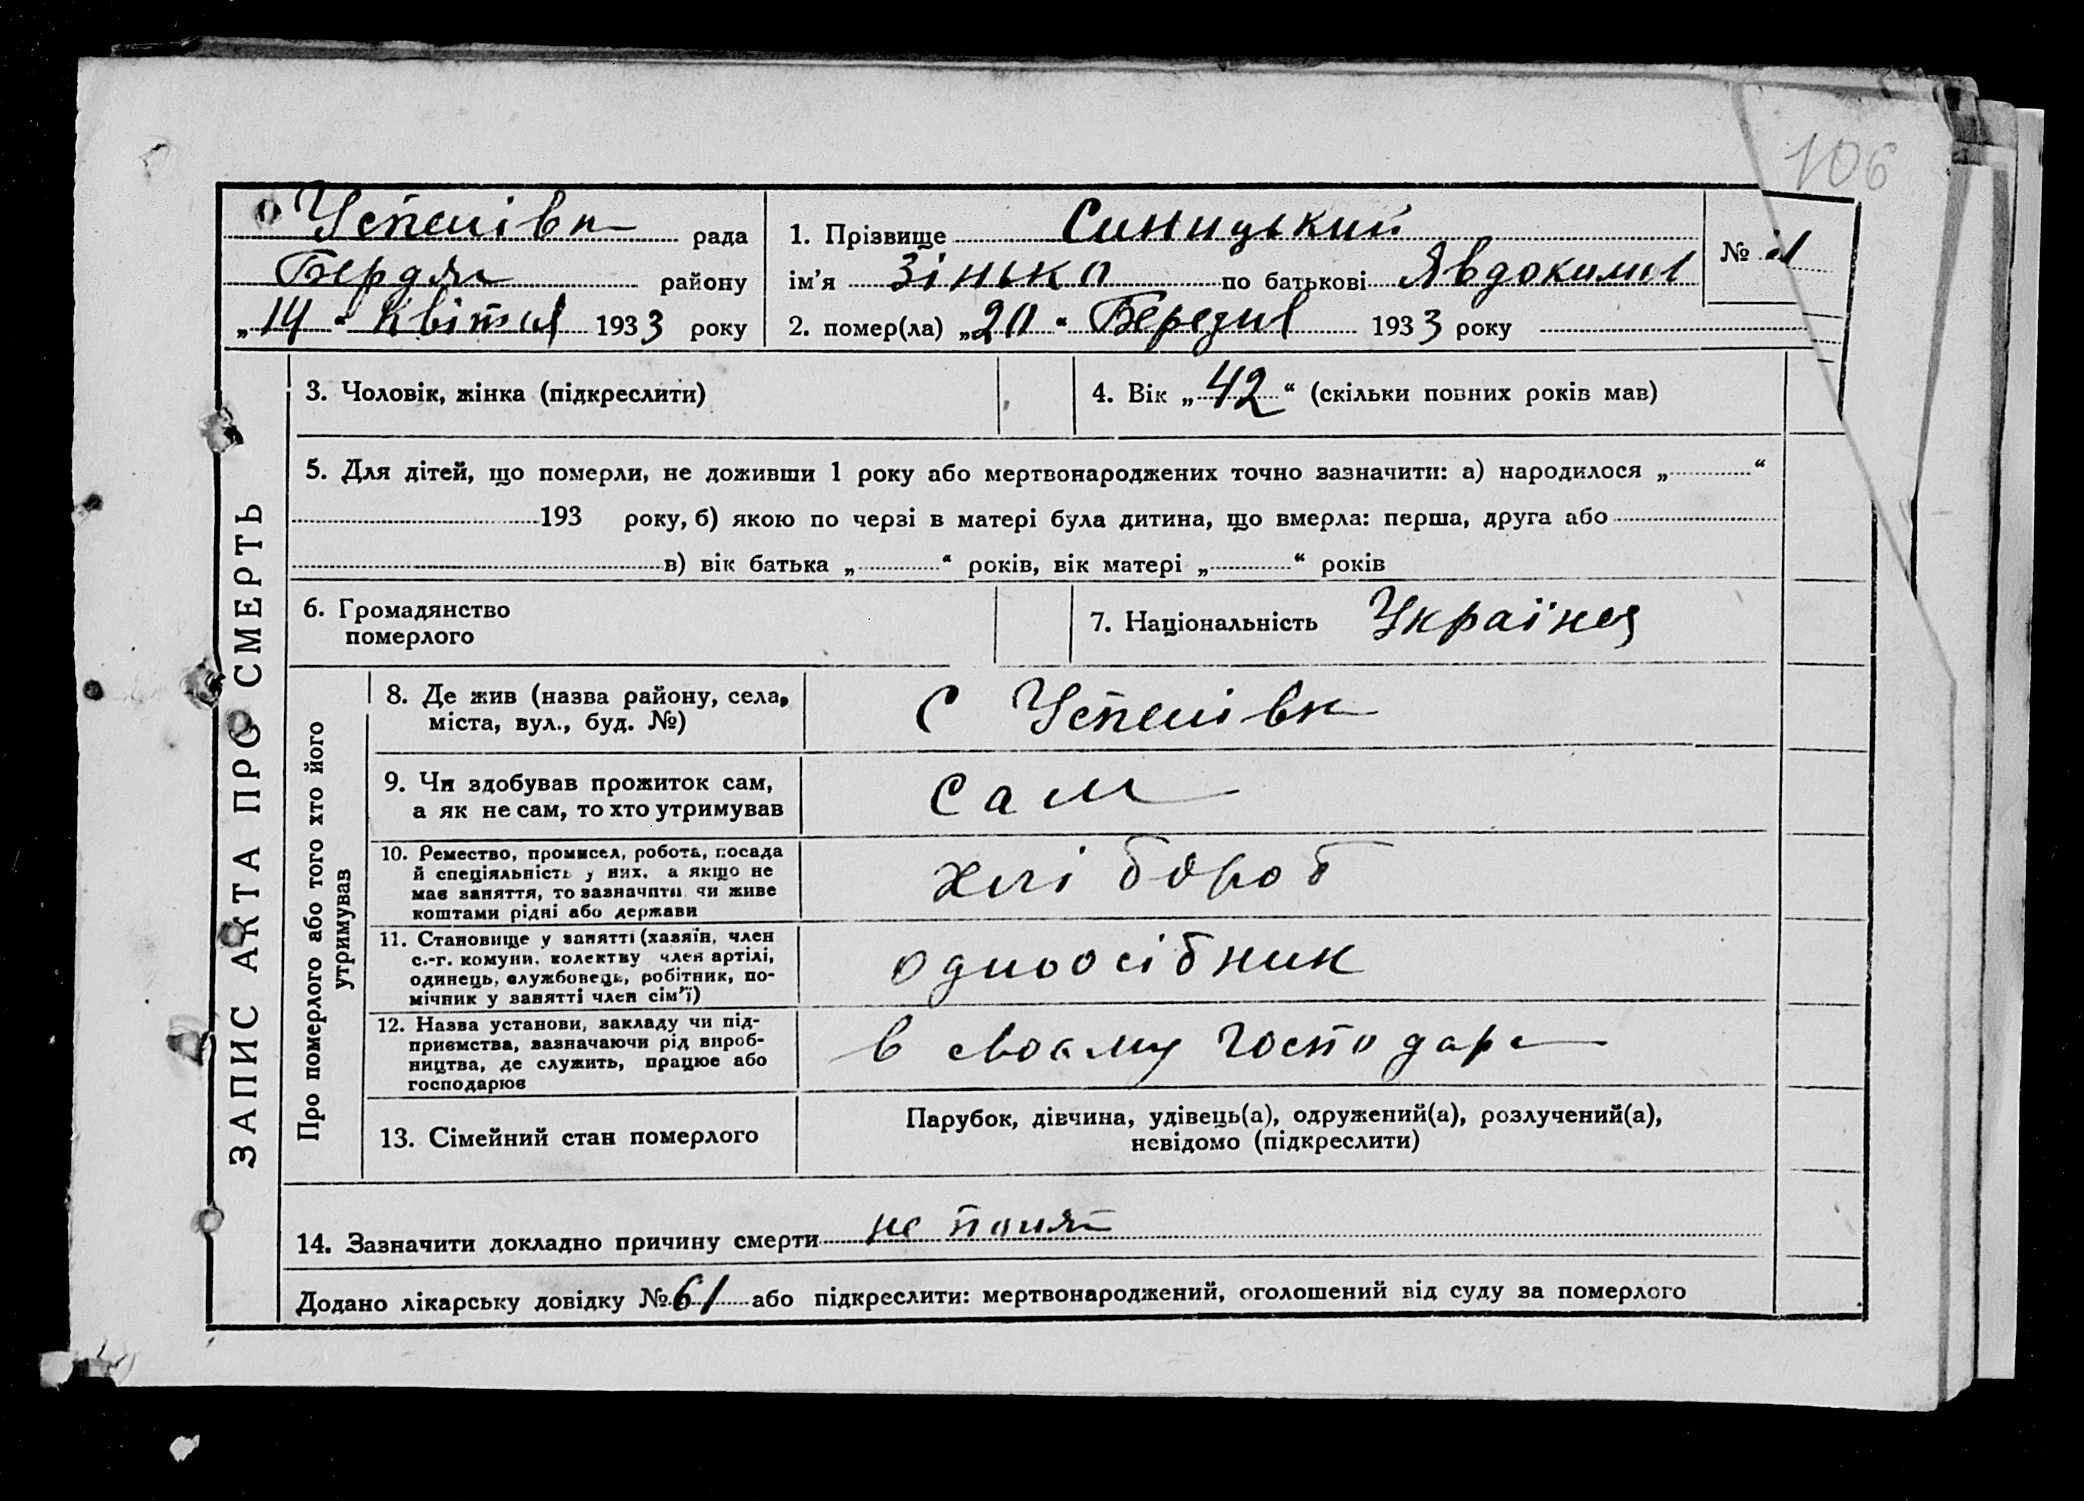 106
Успенівка рада
Бердян району
„14“ квітня 1933 року
1. Прізвище Синицький
ім'я Зінько по батькові Явдокимов
№ 1
2. помер(ла) „20“ Березня 1933 року
ЗАПИС АКТА ПРО СМЕРТЬ
3. Чоловік, жінка (підкреслити)
4. Вік „42“ (скільки повних років мав)
5. Для дітей, що померли, не доживши 1 року або мертвонароджених точно зазначити: а) народилося „ “
193 року, б) якою по черзі в матері була дитина, що вмерла: перша, друга або
в) вік батька „ “ років, вік матері „ “ років
6. Громадянство
померлого
7. Національність Українец
Про померлого або того хто його
утримував
8. Де жив (назва району, села,
міста, вул., буд. №)
с Успенівка
9. Чи здобував прожиток сам,
а як не сам, то хто утримував
сам
10. Ремество, промисел, робота, посада
й спеціяльність у них, а якщо не
має заняття, то зазначити чи живе
коштами рідні або держави
хлібороб
11. Становище у занятті (хазяїн, член
с.-г. комуни, колективу член артілі,
одинець, службовець, робітник, по-
мічник у занятті член сім'ї)
одноосібник
12. Назва установи, закладу чи під-
приємства, зазначаючи рід вироб-
ництва, де служить, працює або
господарює
в своему господар
13. Сімейний стан померлого
Парубок, дівчина, удівець(а), одружений(а), розлучений(а),
невідомо (підкреслити)
14. Зазначити докладно причину смерти не понят
Додано лікарську довідку № 61 або підкреслити: мертвонароджений, оголошений від суду за померлого